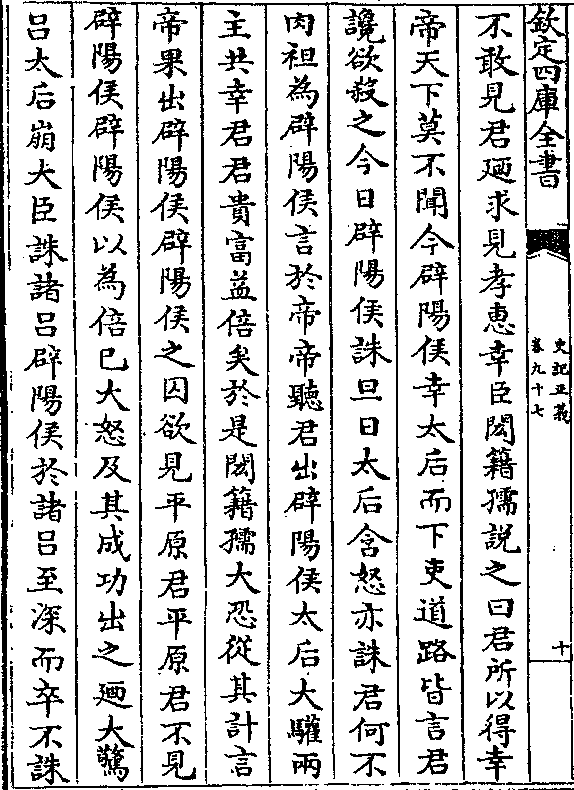 欽定四庫全書
史記正義
卷九十七
十
不敢見君廼求見孝惠幸臣閎籍孺説之曰君所以得幸
帝天下莫不聞今辟陽侯幸太后而下吏道路皆言君
讒欲殺之今日辟陽侯誅旦日太后含怒亦誅君何不
肉袒為辟陽侯言於帝帝聽君出辟陽侯太后大驩兩
主共幸君君貴富益倍矣於是閎籍孺大恐從其計言
帝果出辟陽侯辟陽侯之囚欲見平原君平原君不見
辟陽侯辟陽侯以為倍已大怒及其成功出之廼大驚
吕太后崩大臣誅諸吕辟陽侯於諸吕至深而卒不誅